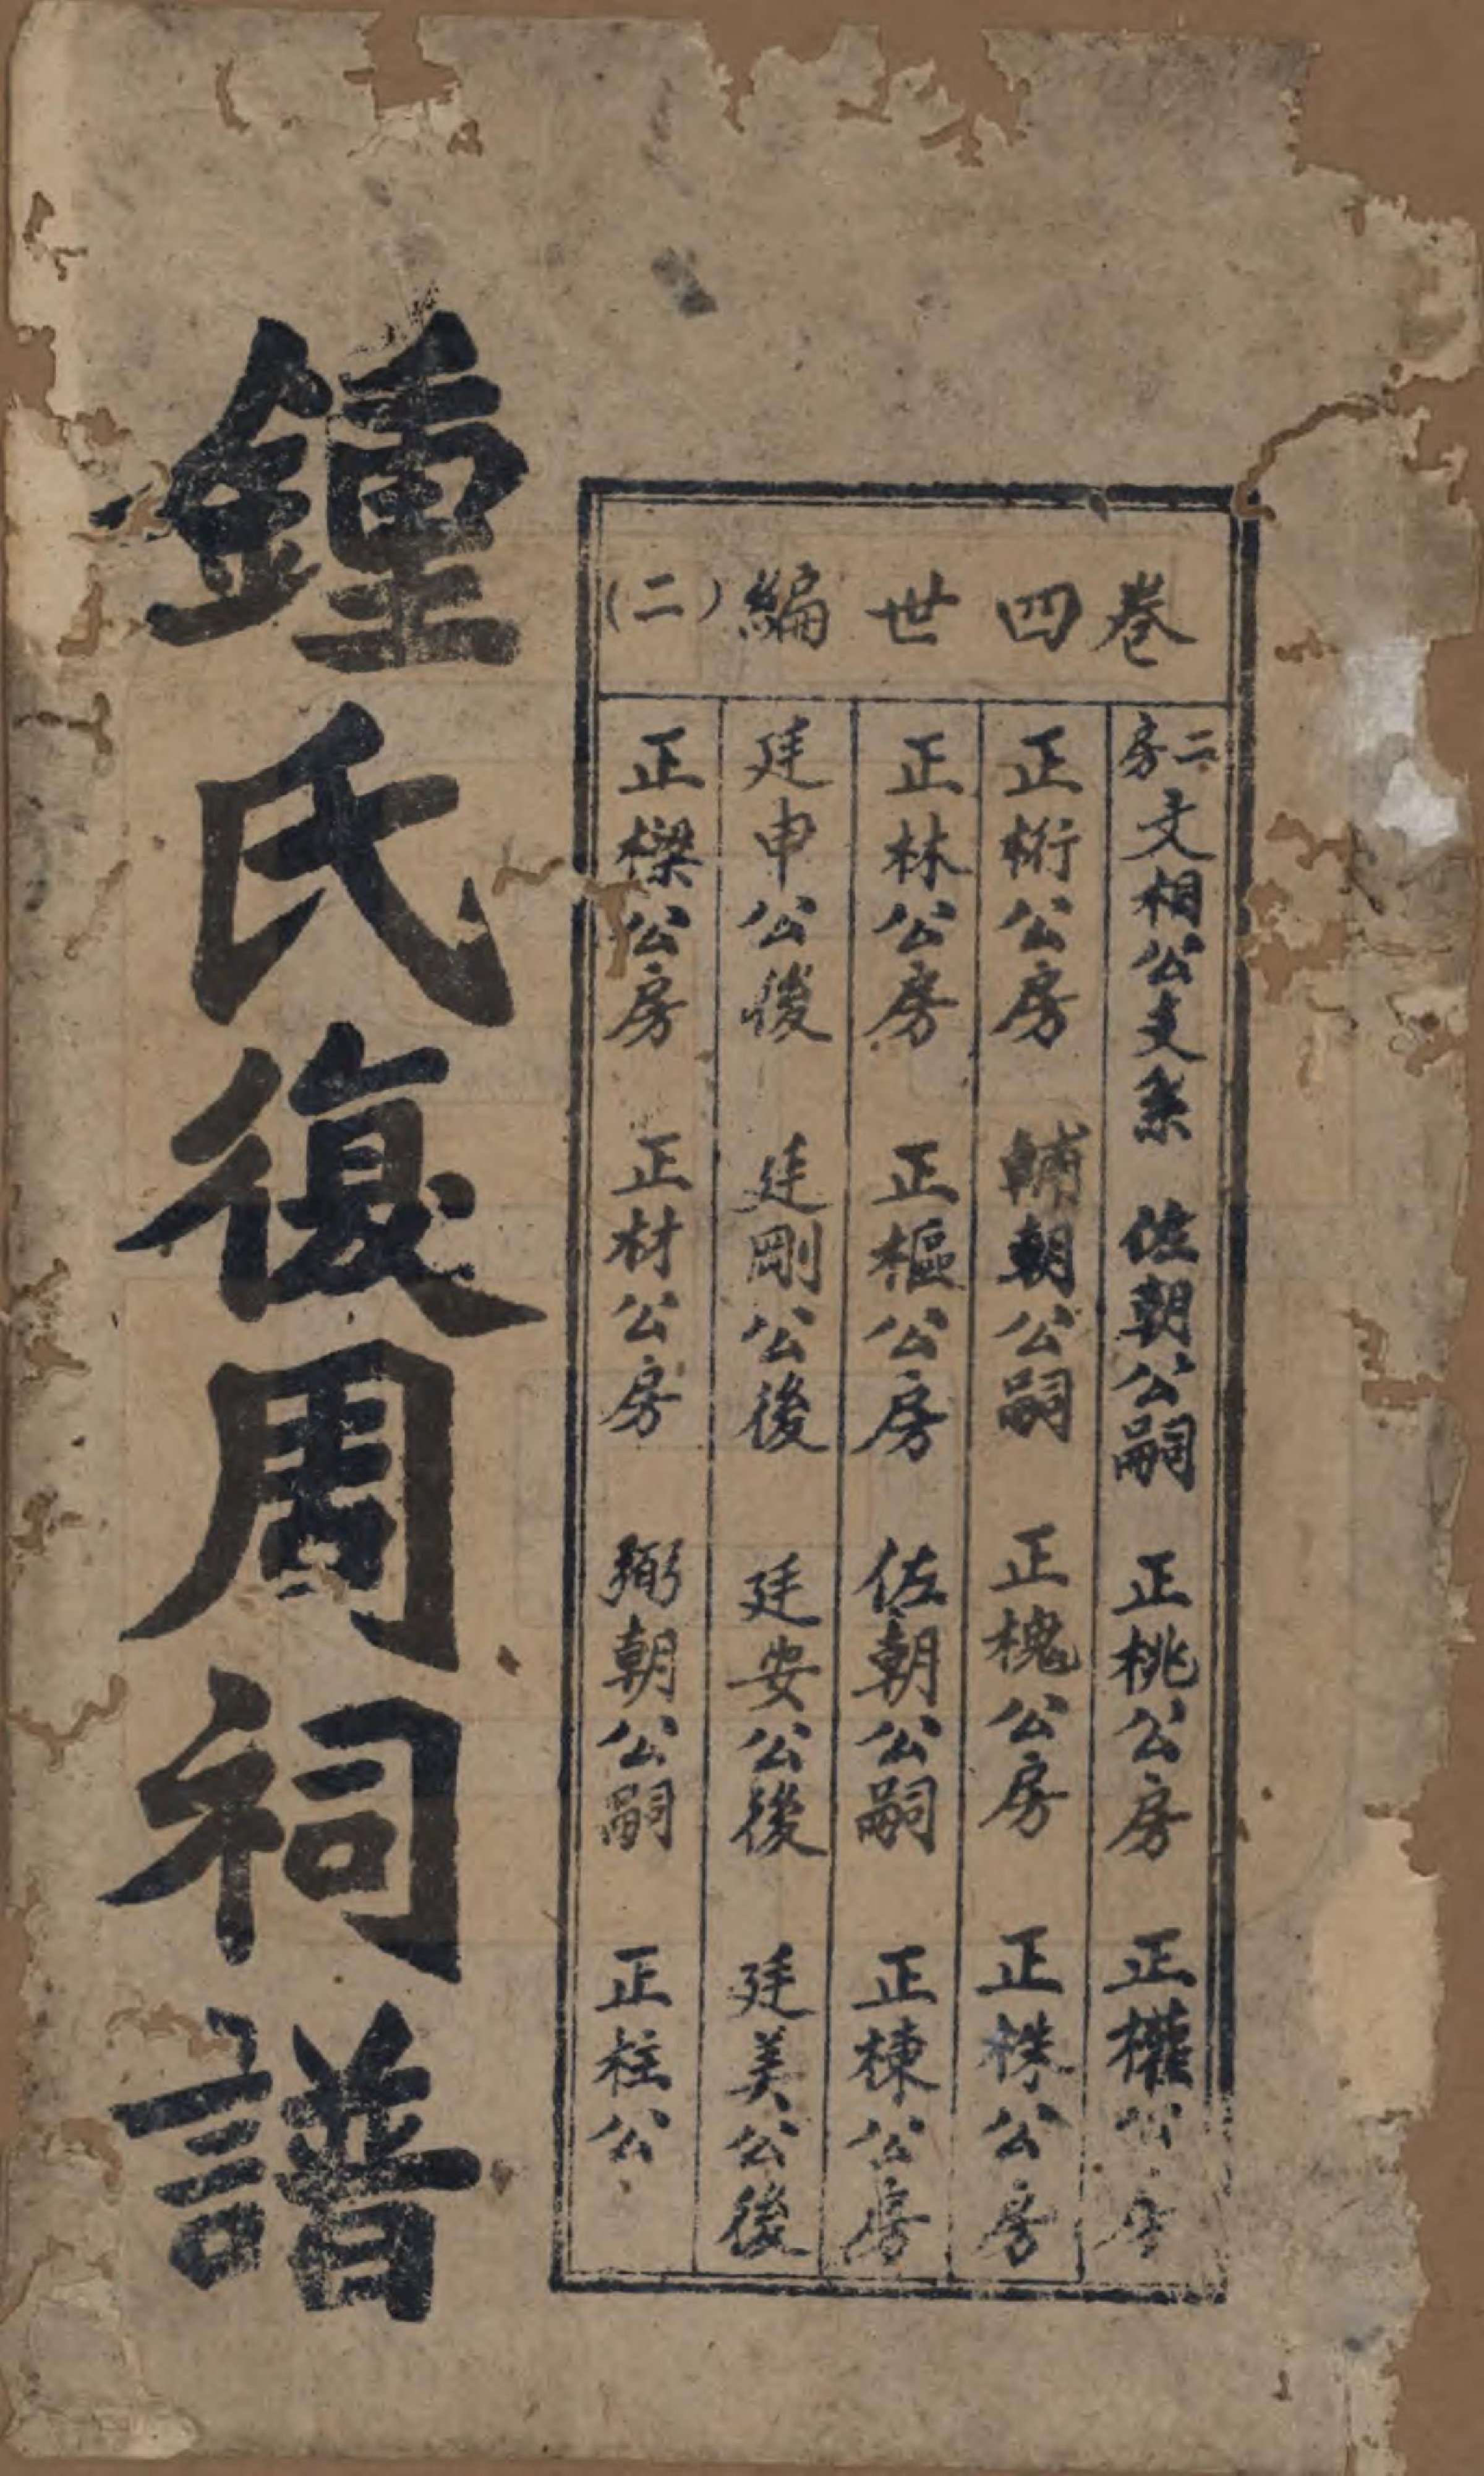 卷四世編(二)
二房文相公支系 佐朝公嗣 正桃公房 正權公房
正桁公房 輔朝公嗣 正槐公房 正株公房
正林公房 正樞公房 佐朝公嗣 正棟公房
廷申公後 廷剛公後 廷安公後 廷美公後
正樑公房 正材公房 弼朝公嗣 正柱公
鍾氏復周祠譜